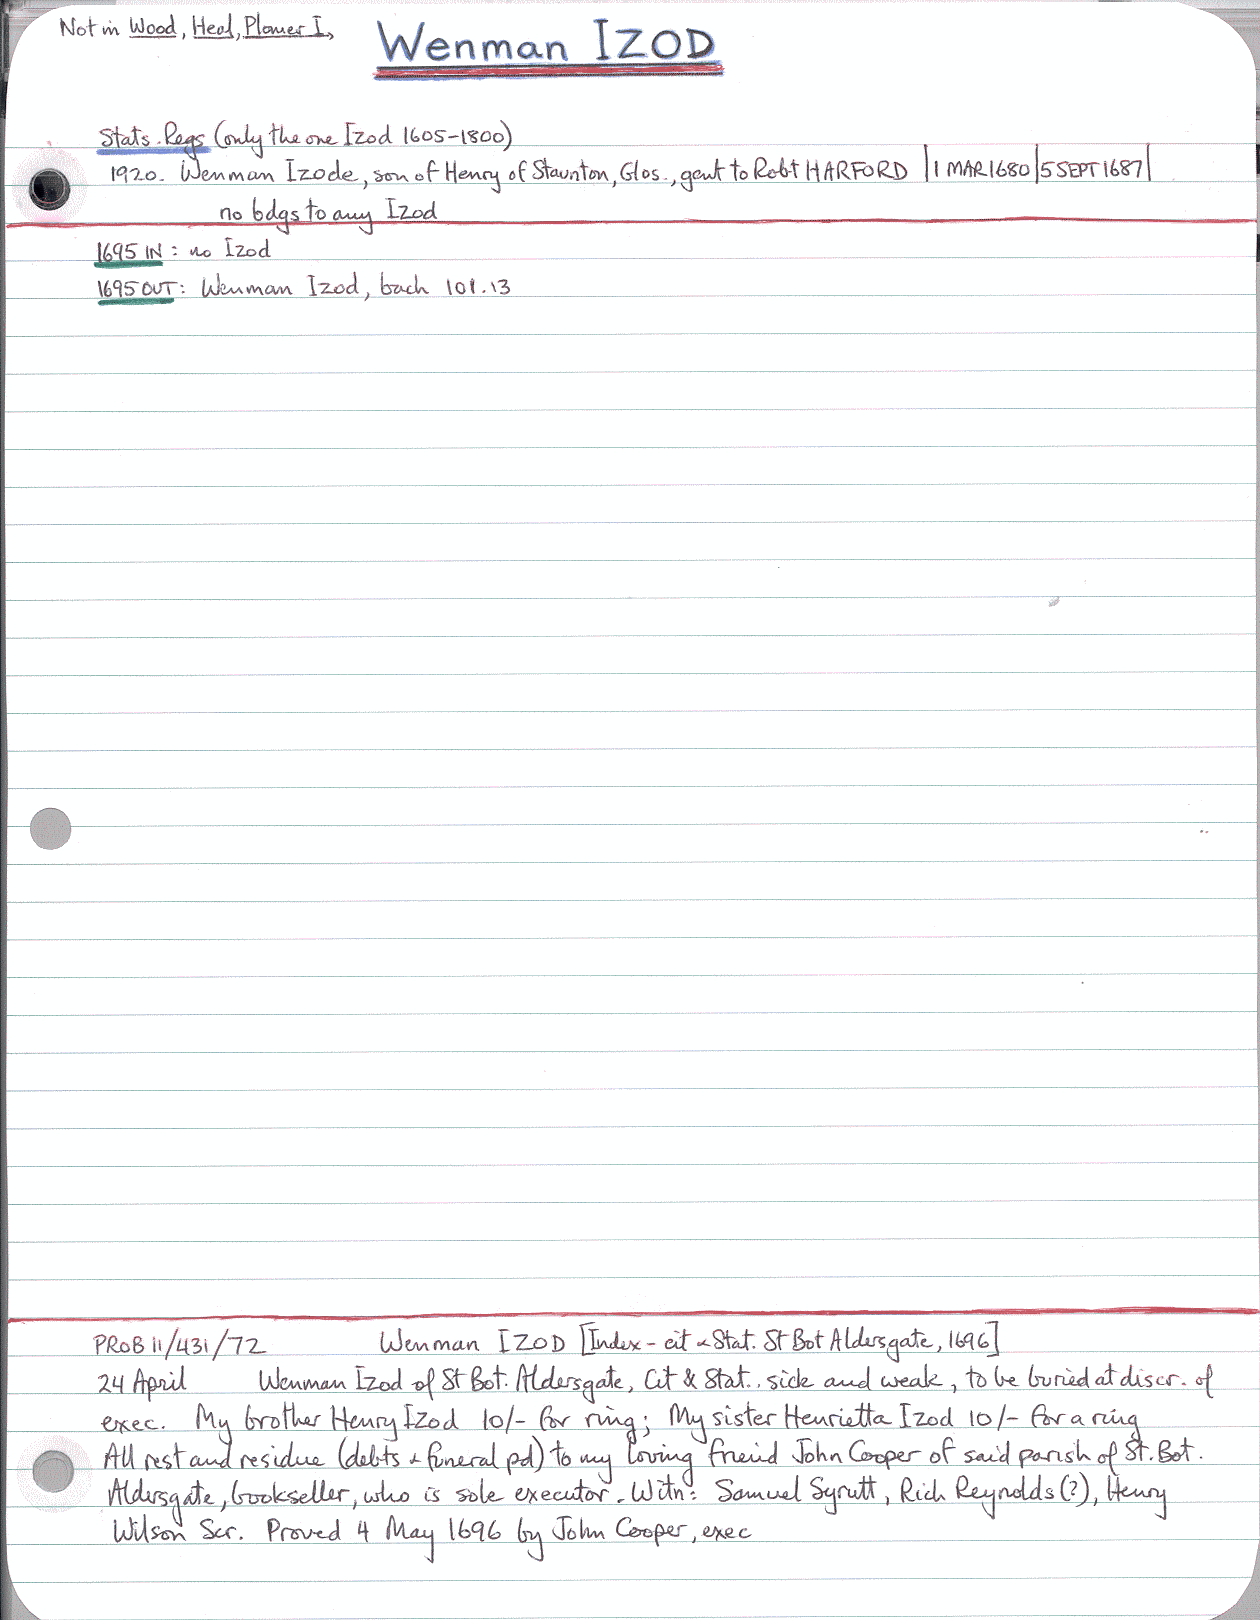 Not in Wood, Heal, Plomer I,
Wenman IZOD
Stats. Regs (only the one Izod 1605-1800)
1920. Wenman Izode, son of Henry of Staunton, Glos., gent to Robt HARFORD |1 MAR 1680|5 SEPT 1687|
no bdgs to any Izod
1695 IN: no Izod
1695 OUT: Wenman Izod, bach 101.13
PROB 11/431/72 Wenman IZOD [Index - cit & Stat. St Bot Aldersgate, 1696]
24 April Wenman Izod of St Bot. Aldersgate, Cit & Stat., sick and weak, to be buried at discr. of
exec. My brother Henry Izod 10/- for ring; My sister Henrietta Izod 10/- for a ring
All rest and residue (debts & funeral pd) to my loving friend John Cooper of said parish of St. Bot.
Aldersgate, bookseller, who is sole executor. Witn: Samuel Syrutt, Rich Reynolds(?), Henry
Wilson Scr. Proved 4 May 1696 by John Cooper, exec